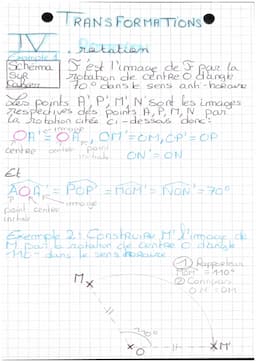 TRANSFORMATIONS
IV. rotation
Exemple 1
Schéma sur cahier
F' est l'image de F par la rotation de centre O d'angle 70° dans le sens anti-horaire
Les points A', P', M', N' sont les images
respectives des points A, P, M, N par
la rotation citée ci-dessous donc:
image
OA' = OA, OM' = OM, OP' = OP
centre centre point initiale
ON' = ON
Et
image
AOA' = POP' = MOM' = NON' = 70°
point centre
initiale
Exemple 2: Construire M' l'image de
M par la rotation de centre O d'angle
110° dans le sens horaire
① Rapporteur
MOM' = 110°
② Compas
OM = OM'
M
110°
O
M'